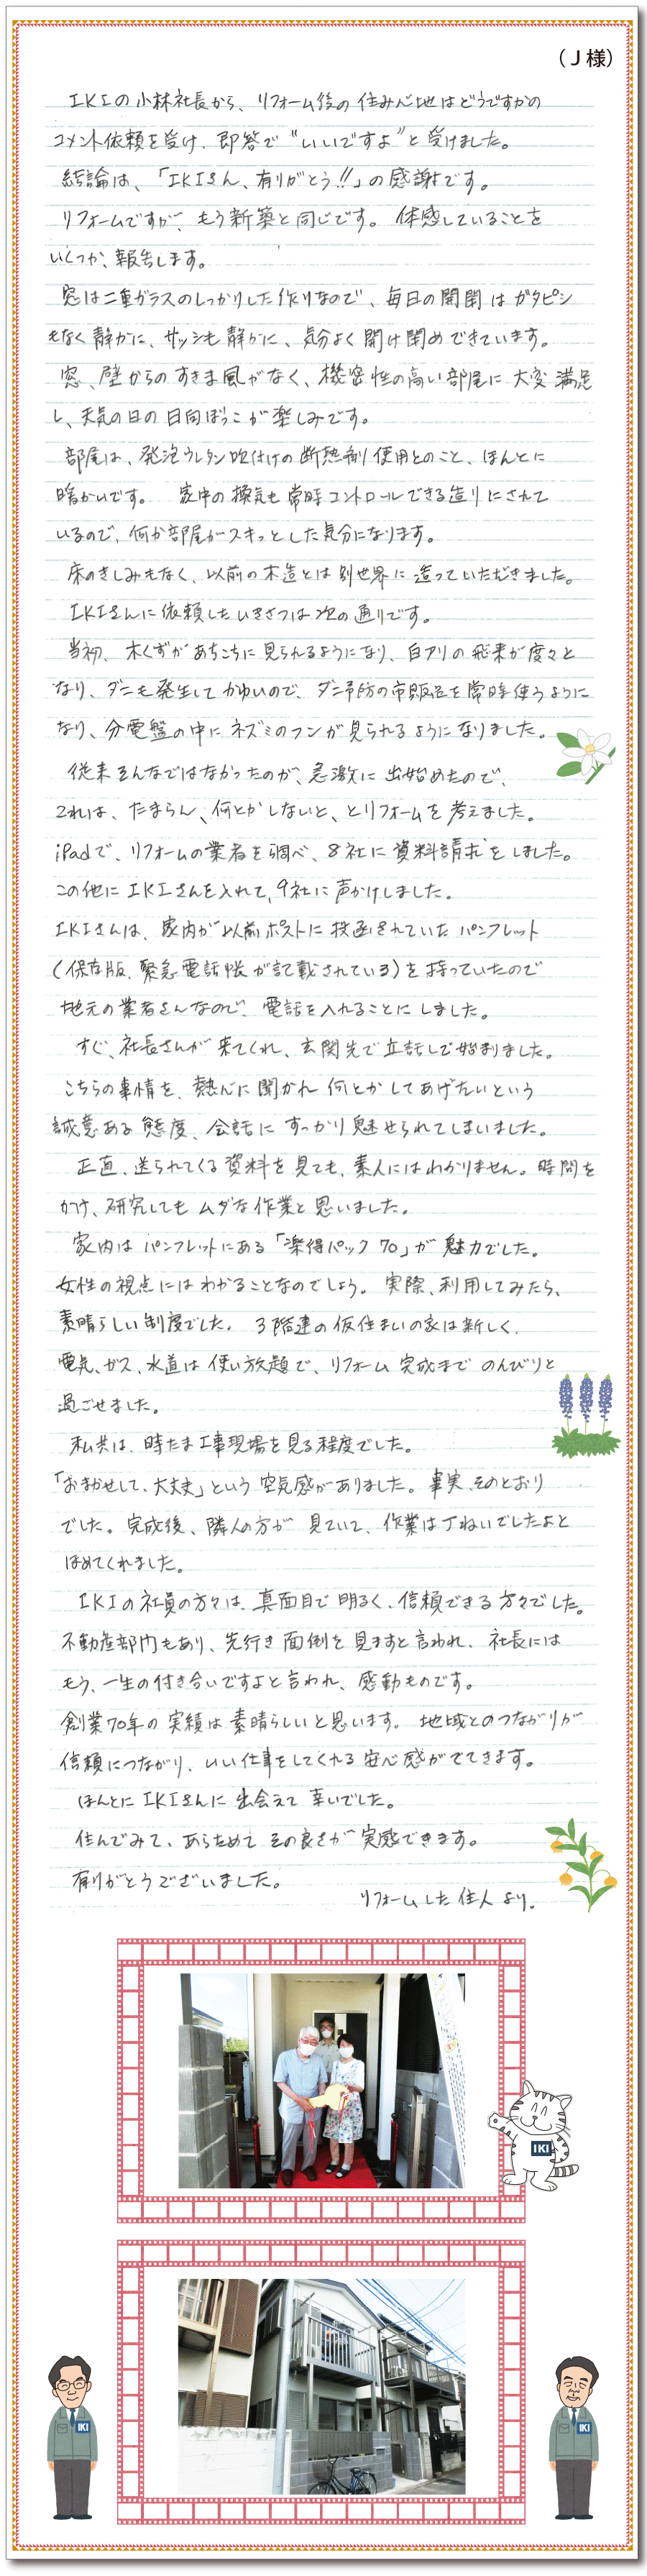 （Ｊ様）
IKIの小林社長から、リフォーム後の住み心地はどうですかの
コメント依頼を受け、即答で“いいですよ”と受けました。
結論は、「IKIさん、有りがとう!!」の感謝です。
リフォームですが、もう新築と同じです。体感していることを
いくつか、報告します。
窓は二重ガラスのしっかりした作りなので、毎日の開閉はガタピシ
もなく静かに、サッシも静かに、気分よく開け閉めできています。
窓、壁からのすきま風がなく、機密性の高い部屋に大変満足
し、天気の日の日向ぼっこが楽しみです。
部屋は、発泡ウレタン吹付けの断熱剤使用とのこと、ほんとに
暖かいです。家中の換気も常時コントロールできる造りにされて
いるので、何か部屋がスキッとした気分になります。
床のきしみもなく、以前の木造とは別世界に造っていただきました。
IKIさんに依頼したいきさつは次の通りです。
当初、木くずがあちこちに見られるようになり、白アリの飛来が度々と
なり、ダニも発生してかゆいので、ダニ予防の市販品を常時使うように
なり、分電盤の中にネズミのフンが見られるようになりました。
従来そんなではなかったのが、急激に出始めたので、
これは、たまらん、何とかしないと、とリフォームを考えました。
iPadで、リフォームの業者を調べ、8社に資料請求をしました。
この他にIKIさんを入れて、9社に声かけしました。
IKIさんは、家内が以前ポストに投函されていたパンフレット
（保存版、緊急電話帳が記載されている）を持っていたので
地元の業者さんなので、電話を入れることにしました。
すぐ、社長さんが来てくれ、玄関先で立話しで始まりました。
こちらの事情を、熱心に聞かれ何とかしてあげたいという
誠意ある態度、会話にすっかり魅せられてしまいました。
正直、送られてくる資料を見ても、素人にはわかりません。時間を
かけ、研究してもムダな作業と思いました。
家内はパンフレットにある「楽得パック70」が魅力でした。
女性の視点にはわかることなのでしょう。実際、利用してみたら、
素晴らしい制度でした。3階建の仮住まいの家は新しく、
電気、ガス、水道は使い放題で、リフォーム完成までのんびりと
過ごせました。
私共は、時たま工事現場を見る程度でした。
「おまかせして、大丈夫」という空気感がありました。事実、そのとおり
でした。完成後、隣人の方が見ていて、作業は丁ねいでしたよと
ほめてくれました。
IKIの社員の方々は、真面目で明るく、信頼できる方々でした。
不動産部門もあり、先行き面倒を見ますと言われ、社長には
もう、一生の付き合いですよと言われ、感動ものです。
創業70年の実績は素晴らしいと思います。地域とのつながりが
信頼につながり、いい仕事をしてくれる安心感がでてきます。
ほんとにIKIさんに出会えて幸いでした。
住んでみて、あらためてその良さが実感できます。
有りがとうございました。
リフォームした住人より。
IKI
IKI
IKI